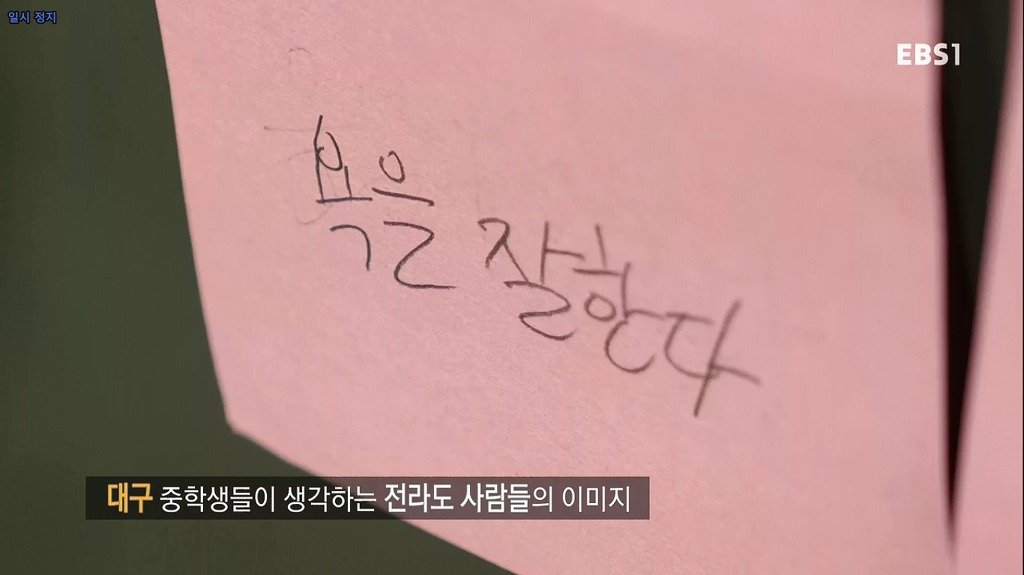 일시 정지
EBS1
욕을 잘한다
대구 중학생들이 생각하는 전라도 사람들의 이미지